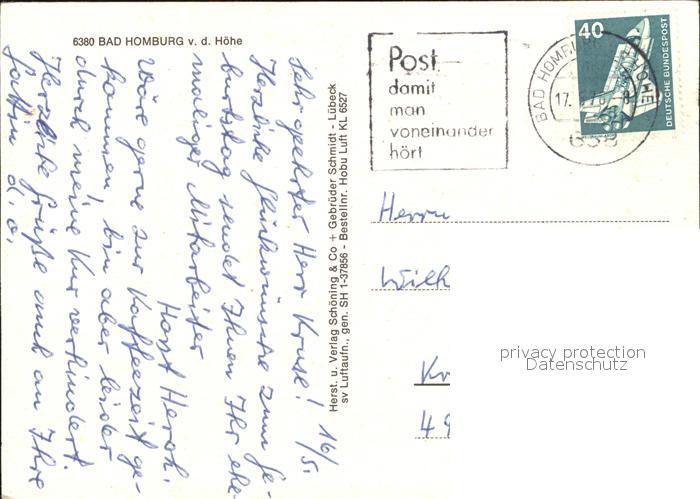 6380 BAD HOMBURG v. d. Höhe
16/5.
Sehr geehrter Herr Kruse!
Herzliche Glückwünsche zum Ge-
burtstag sendet Ihnen Ihr ehe-
maliger Mitarbeiter
Horst
Wäre gerne zur Kaffeezeit ge-
kommen, bin aber leider
durch meine Kur verhindert.
Herzliche Grüße auch an Ihre
Gattin d. O.
Herst. u. Verlag Schöning & Co + Gebrüder Schmidt - Lübeck
sv Luftaufn., gen. SH 1-37856 - Bestellnr. Hobu Luft KL 6527
Post
damit
man
voneinander
hört
BAD HOMBURG
HÖHE
17.
638
40
DEUTSCHE BUNDESPOST
Herrn
Wilh
Kr
49
privacy protection
Datenschutz